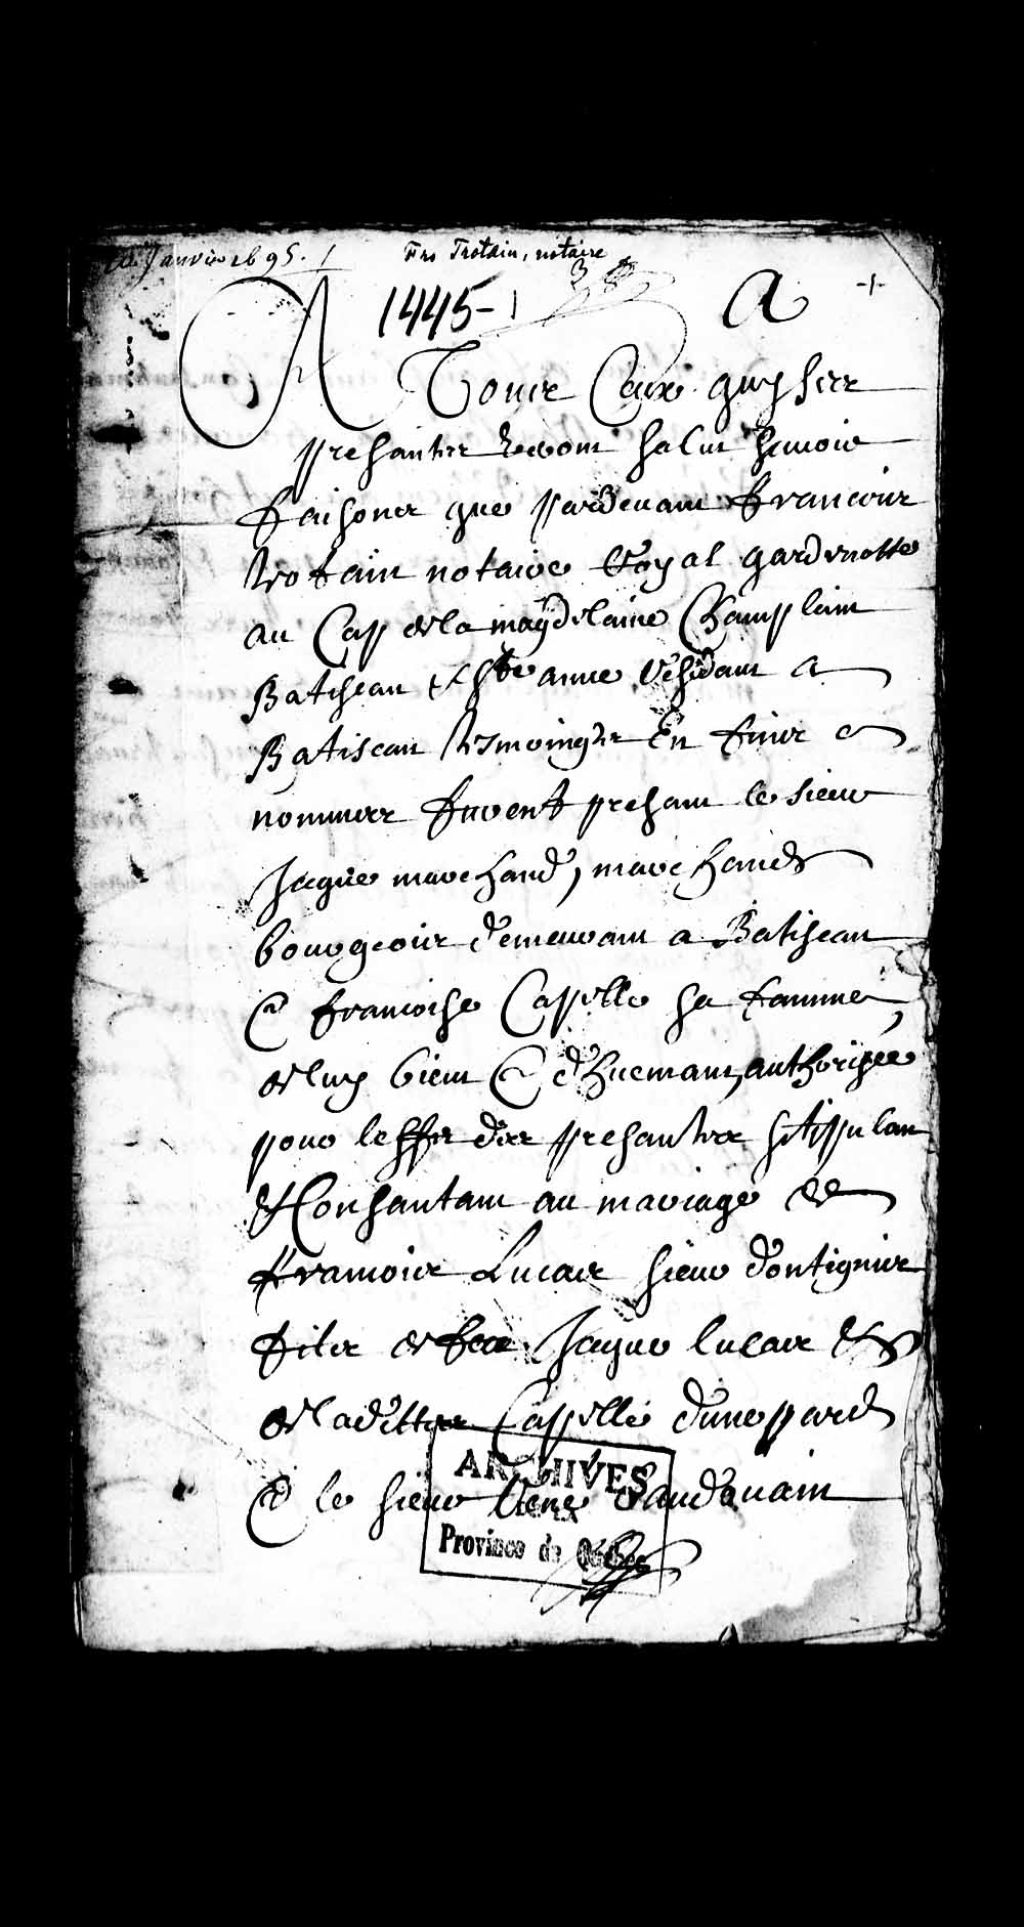 Janvier 1695. /
Frs Trotain, notaire
38
1445-1
a
A Tour Ceux quy ses
presantes Veront Salut Scavoir
faisons que pardevant francois
trotain notaire Royal gardenotte
au Cap de la magdelaine Champlain
Batisean et Ste anne Residant a
Batiscan tesmoingts En fins
nommes fuvent presant le sieur
Jaque marchand, marchand
bourgeois demeurant a Batisean
et francoise Capelle sa famme
de luy bien et dhuemant, authorisee
pour leffet des presantes stipulan
et Consantant au mariage de
francois Lucas sieur dontignies
fils de feu Jaque lucas et
de laditte Capelle dune pard
et le sieur Rene baudouain
ARCHIVES
Province de Québec